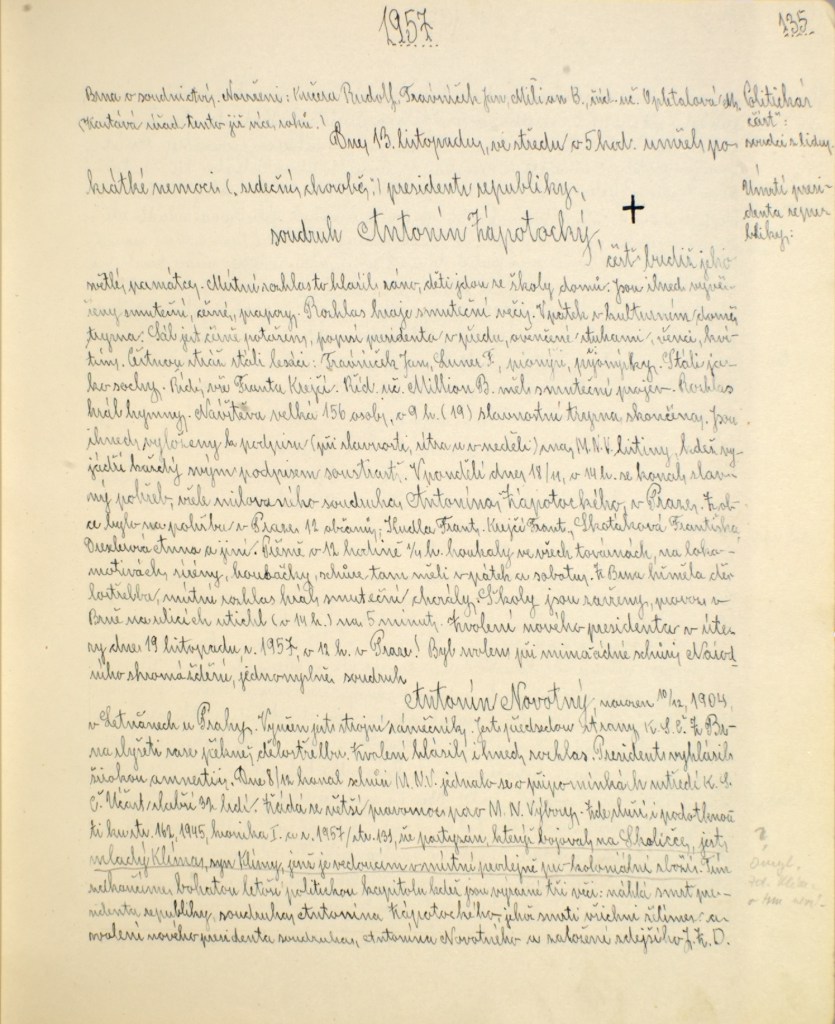 1957
135
Brna o soudnictví. Navrženi: Kučera Rudolf, Trávníček Jan, Milion B., řed. uč. Vpletalová M.
Politická
část:
soudci z lidu.
Zastává úřad tento již více roků!
Dne 13. listopadu, ve středu o 5 hod. umřel, po
krátké nemoci (srdeční chorobě:) president republiky,
Úmrtí presi-
denta repu-
bliky:
soudruh Antonín Zápotocký,
čest budiž jeho
světlé památce. Místní rozhlas to hlásil ráno, děti jdou ze školy domů. Jsou ihned vyvě-
šeny smuteční, černé, prapory. Rozhlas hraje smuteční věci. V pátek v kulturním domě
tryzna. Sál jest černě potažen, poprsí presidenta v předu, ověnčené stuhami, věnci, kvě-
tiny. Čestnou stráž stáli lesáci: Trávníček Jan, Luner F., pionýři, pionýrky. Stáli ja-
ko sochy. Řídí vše Franta Krejčí. Řed. uč. Million B. měl smuteční projev. Rozhlas
hrál hymny. Návštěva velká 156 osob, o 9 h. (19) slavnostní tryzna skončena. Jsou
ihned vyloženy k podpisu (při slavnosti, zítra u v neděli) na M.N.V. listiny, kdež vy-
jádří každý svým podpisem soustrast. V pondělí dne 18/11, o 14 h. se konal slav-
ný pohřeb vřele milovaného soudruha Antonína Zápotockého, v Praze. Z ob-
ce bylo na pohřbu v Praze 12 občanů; Hudla Frant. Krejčí Frant., Skoťáková Františka,
Drexlerová Anna a jiní. Přesně v 12 hodin houkaly ve všech továrnách, na loko-
motivách, sirény, houkačky, schůze tam měli v pátek a sobotu. Z Brna hřměla děl
lostřelba, místní rozhlas hrál smuteční chorály. Školy jsou zavřeny, provoz v
Brně na ulicích utichl (v 14 h.) na 5 minut. Zvolení nového presidenta v úter-
ý dne 19 listopadu r. 1957, o 12 h. v Praze! Byl zvolen při mimořádné schůzi Národ-
ního shromáždění, jednomyslně soudruh
Antonín Novotný, narozen 10/12, 1904,
v Letňanech u Prahy. Vyučen jest strojní zámečník. Jest předsedou strany K.S.Č. Z Br-
na slyšeti zase pěknou dělostřelbu. Zvolení hlásil ihned rozhlas. President vyhlásil
širokou amnestii. Dne 8/12 konal schůzi M.N.V. jednalo se o připomínkách ústředí K.S.
Č. Účast slabší 32 lidí. Žádá se větší pravomoc pro M.N. Výbory. Zde sluší i podotknou-
ti ku str. 162, 1945, kronika I. a r. 1957/str. 133, že partyzán, který bojoval na Skaličce, jest,
mladý Klímas, syn Klímy, jenž je vedoucím v místní prodejně po koloniální zboží. Tím
zakončíme bohatou letošní politickou kapitolu kdež jsou význačné tři věci: náhlá smrt pre-
sidenta republiky, soudruha, Antonína Zápotockého, jehož smrti všichni želíme a
zvolení nového presidenta soudruha, Antonína Novotného a založení zdejšího J.Z.D.